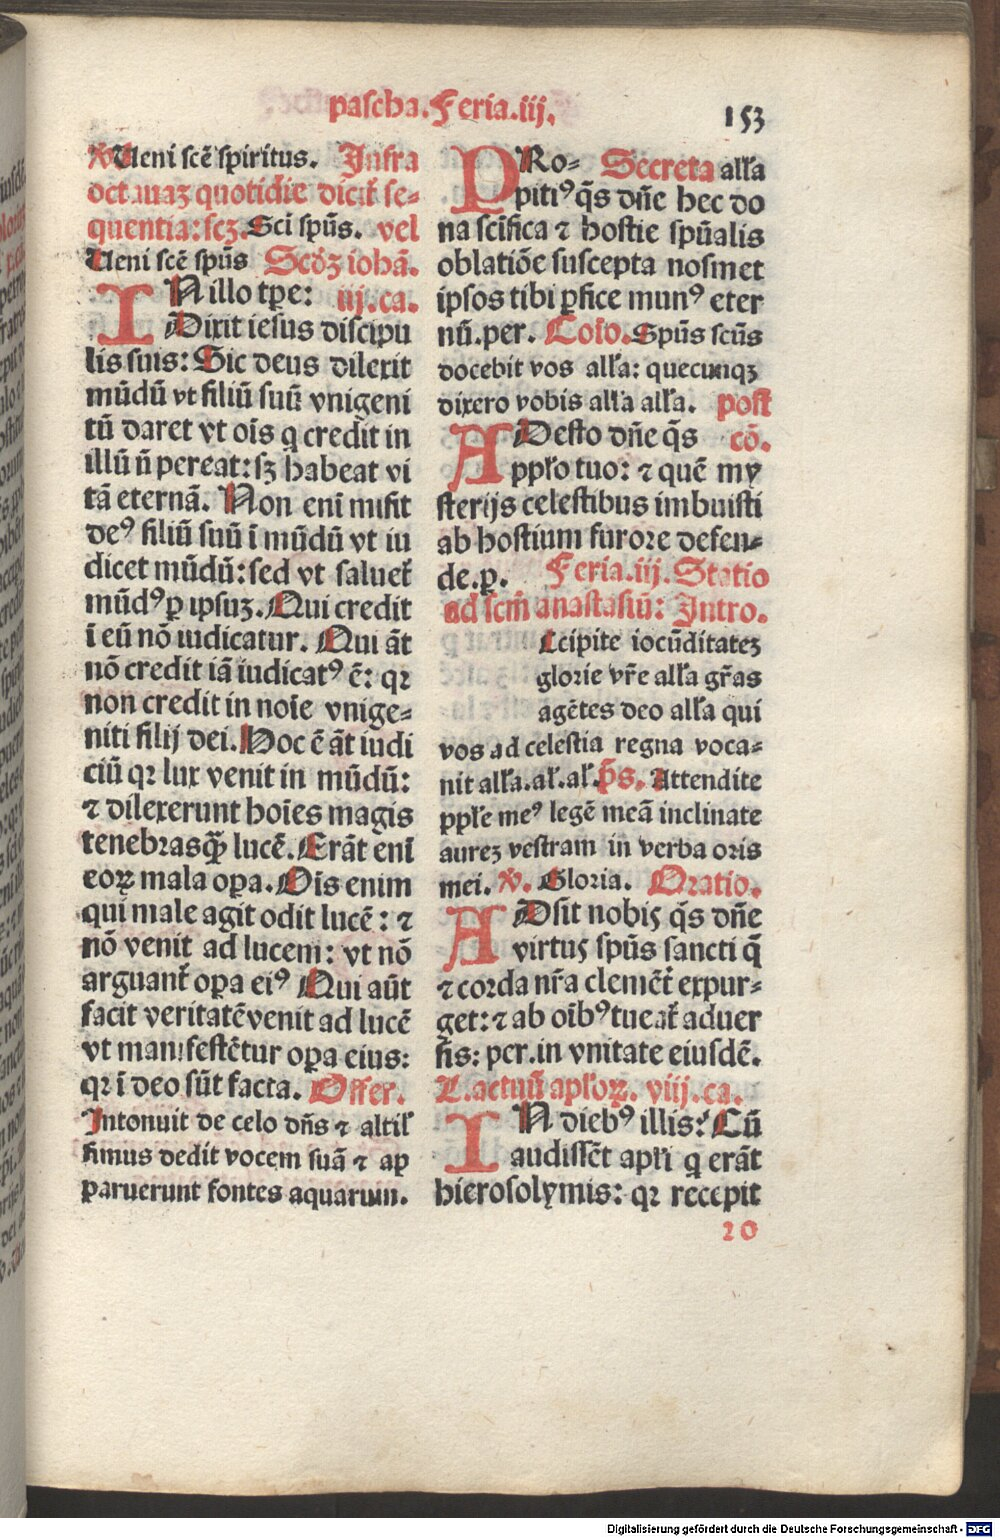 pascha.Feria.iij.
153
℣ Ueni scẽ spiritus. Infra
octauaꝫ quotidie dicit̃ se-
quentia: scꝫ. Sci spũs. vel
Ueni scẽ spũs Scd̃ꝫ iohã.
IN illo tp̃e: iij.ca.
Dixit iesus discipu
lis suis: Sic deus dilexit
mũdũ vt filiũ suũ vnigeni
tũ daret vt oĩs q̃ credit in
illũ ñ pereat: sꝫ habeat vi
tã eternã. Non enĩ misit
deꝰ filiũ suũ ĩ mũdũ vt iu
dicet mũdũ: sed vt saluet̃
mũdꝰ ꝑ ipsuꝫ. Qui credit
ĩ eũ nõ iudicatur. Qui ãt
nõ credit iã iudicatꝰ ẽ: qꝛ
non credit in noĩe vnige-
niti filij dei. Hoc ẽ ãt iudi
ciũ qꝛ lux venit in mũdũ:
⁊ dilexerunt hoĩes magis
tenebras q̃ȝ lucẽ. Erãt enĩ
eoꝝ mala oꝑa. Oĩs enim
qui male agit odit lucẽ: ⁊
nõ venit ad lucem: vt nõ
arguant̃ oꝑa eiꝰ Qui aũt
facit veritatẽ venit ad lucẽ
vt manifestẽtur oꝑa eius:
qꝛ ĩ deo sũt facta. Offer.
Intonuit de celo dñs ⁊ altis̃
simus dedit vocem suã ⁊ ap
paruerunt fontes aquarum.
PRo- Secreta all̃a
pitiꝰ q̃s dñe hec do
na scĩfica ⁊ hostie spũalis
oblatiõe suscepta nosmet
ipsos tibi ꝑfice munꝰ eter
nũ.per. Coĩo. Spũs scũs
docebit vos all̃a: quecunqꝫ
dixero vobis all̃a all̃a. post
ADesto dñe q̃s cõ.
pp̃lo tuo: ⁊ quẽ my
sterijs celestibus imbuisti
ab hostium furore defen-
de.ꝑ. Feria.iij. Statio
ad scm̃ anastasiũ: Intro.
Accipite iocũditateꝫ
glorie vr̃e all̃a gr̃as
agẽtes deo all̃a qui
vos ad celestia regna voca-
uit all̃a.al̃.al̃. p̃s. Attendite
pp̃le meꝰ legẽ meã inclinate
aureꝫ vestram in verba oris
mei. ℣. Gloria. Oratio.
ADsit nobiꝫ q̃s dñe
virtuꝫ spũs sancti q̃
⁊ corda nr̃a clemẽt̃ expur-
get: ⁊ ab oĩbꝰ tueat̃ aduer
sis: per.in vnitate eiusdẽ.
L. actuũ apl̃oꝝ. viij.ca.
IN diebꝰ illis: Cũ
audissẽt apl̃i q̃ erãt
hierosolymis: qꝛ recepit
20
Digitalisierung gefördert durch die Deutsche Forschungsgemeinschaft - DFG